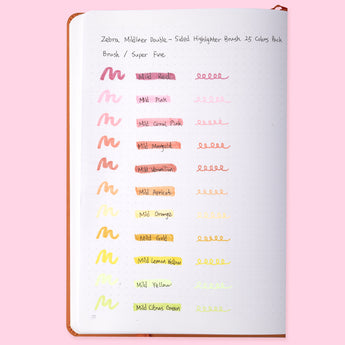 Zebra Mildliner Double-Sided Highlighter Brush 25 Colors Pack
Brush / Super Fine
Mild Red
Mild Pink
Mild Coral Pink
Mild Marigold
Mild Vermilion
Mild Apricot
Mild Orange
Mild Gold
Mild Lemon Yellow
Mild Yellow
Mild Citrus Green